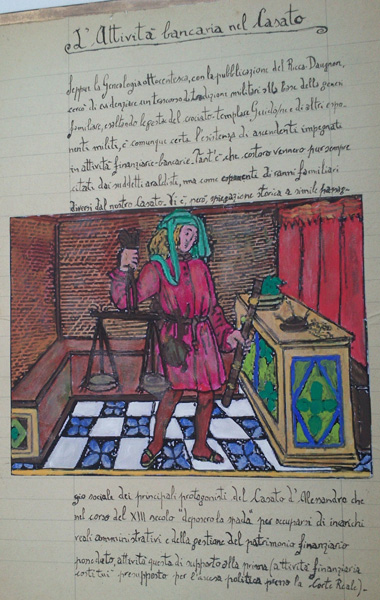 L'Attività bancaria nel Casato
Seppur la Genealogia ottocentesca, con la pubblicazione del Ricca-Daugnon,
cercò di evidenziare un trascorso di tradizioni militari alla base della
familiare, esaltando le gesta del crociato-templare Guidone e di altri espo-
nenti militi, è comunque certa l'esistenza di ascendenti impegnati
in attività finanziarie-bancarie. Tant'è che costoro vennero pur sempre
citati dai suddetti araldisti, ma come esponenti di rami familiari
diversi dal nostro Casato. Vi è, però, spiegazione storica a simile passag-
gio sociale dei principali protagonisti del Casato d'Alessandro che
nel corso del XIII secolo "deposero la spada" per occuparsi di incarichi
reali amministrativi e della gestione del patrimonio finanziario
ponderato, attività questa di supporto alla prima (attività finanziaria
costituì presupposto per l'ascesa politica presso la "Corte Reale).